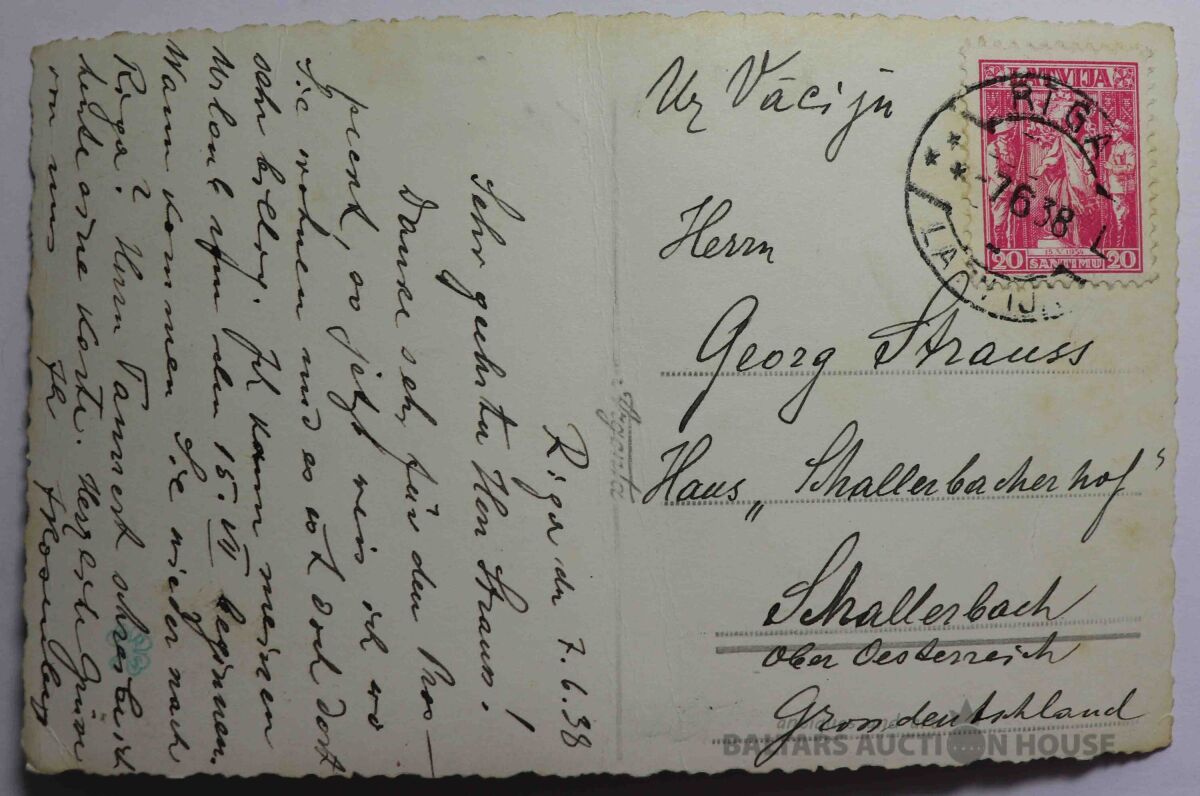 Riga den 7.6.38
Sehr geehrter Herr Strauss!
Danke sehr für den Pros-
pekt, so jetzt weis ich wo
Sie wohnen und es ist doch dort
sehr billig. Ich kann meinen
Urlaub vom den 15. VII beginnen.
Wann kommen Sie wieder nach
Riga? Herrn Tannert schreibe ich
heute eine Karte. Herzliche Grüsse
von uns
Ihr
Uz Vāciju
Herrn
Georg Strauss
Haus „Schallerbacherhof“
Schallerbach
Ober Oesterreich
Grossdeutschland
LATVIJA
15.V.1934
20 SANTIMU 20
RĪGA
-7 6 38
LATVIJA
BALTARS AUCTION HOUSE